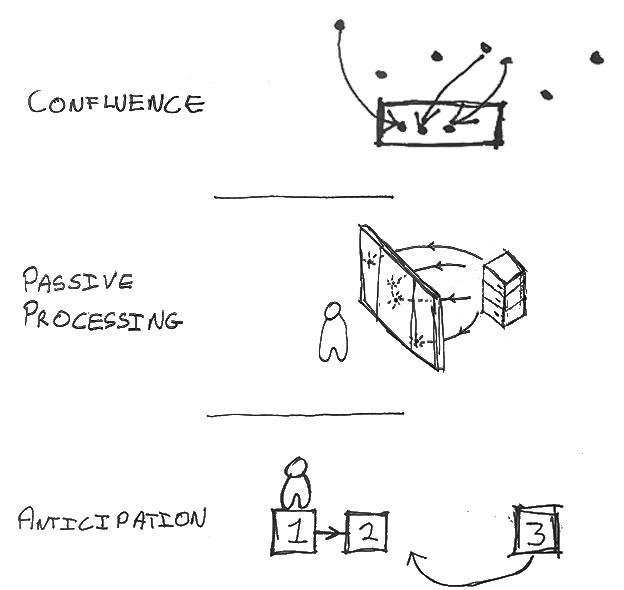 CONFLUENCE
PASSIVE
PROCESSING
ANTICIPATION
1 2 3